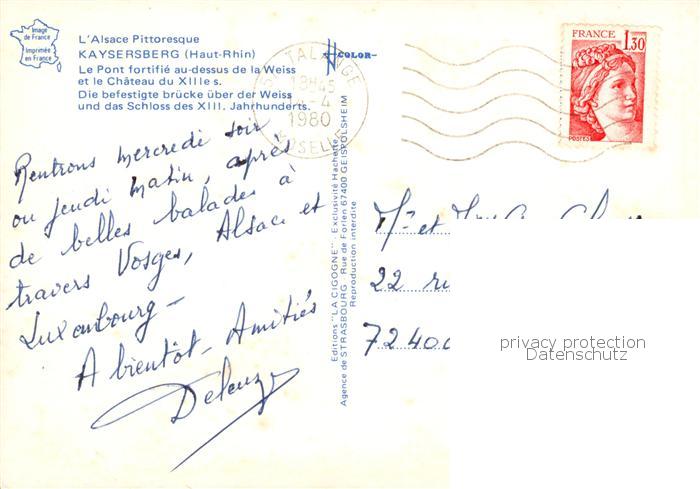 Image
de France
Imprimée
en France
L'Alsace Pittoresque
KAYSERSBERG (Haut-Rhin)
Le Pont fortifié au-dessus de la Weiss
et le Château du XIIIe s.
Die befestigte brücke über der Weiss
und das Schloss des XIII. Jahrhunderts.
COLOR
TALANGE
18H45
-4
1980
MOSELLE
FRANCE
1,30
POSTES
Rentrons mercredi soir
ou jeudi matin, après
de belles balades à
travers Vosges, Alsace et
Luxembourg -
A bientôt - Amitiés
Editions "LA CIGOGNE" - Exclusivité Hachette
Agence de STRASBOURG - Rue de Forlen 67400 GEISPOLSHEIM
Reproduction interdite
Mr et
22 ru
72400
privacy protection
Datenschutz